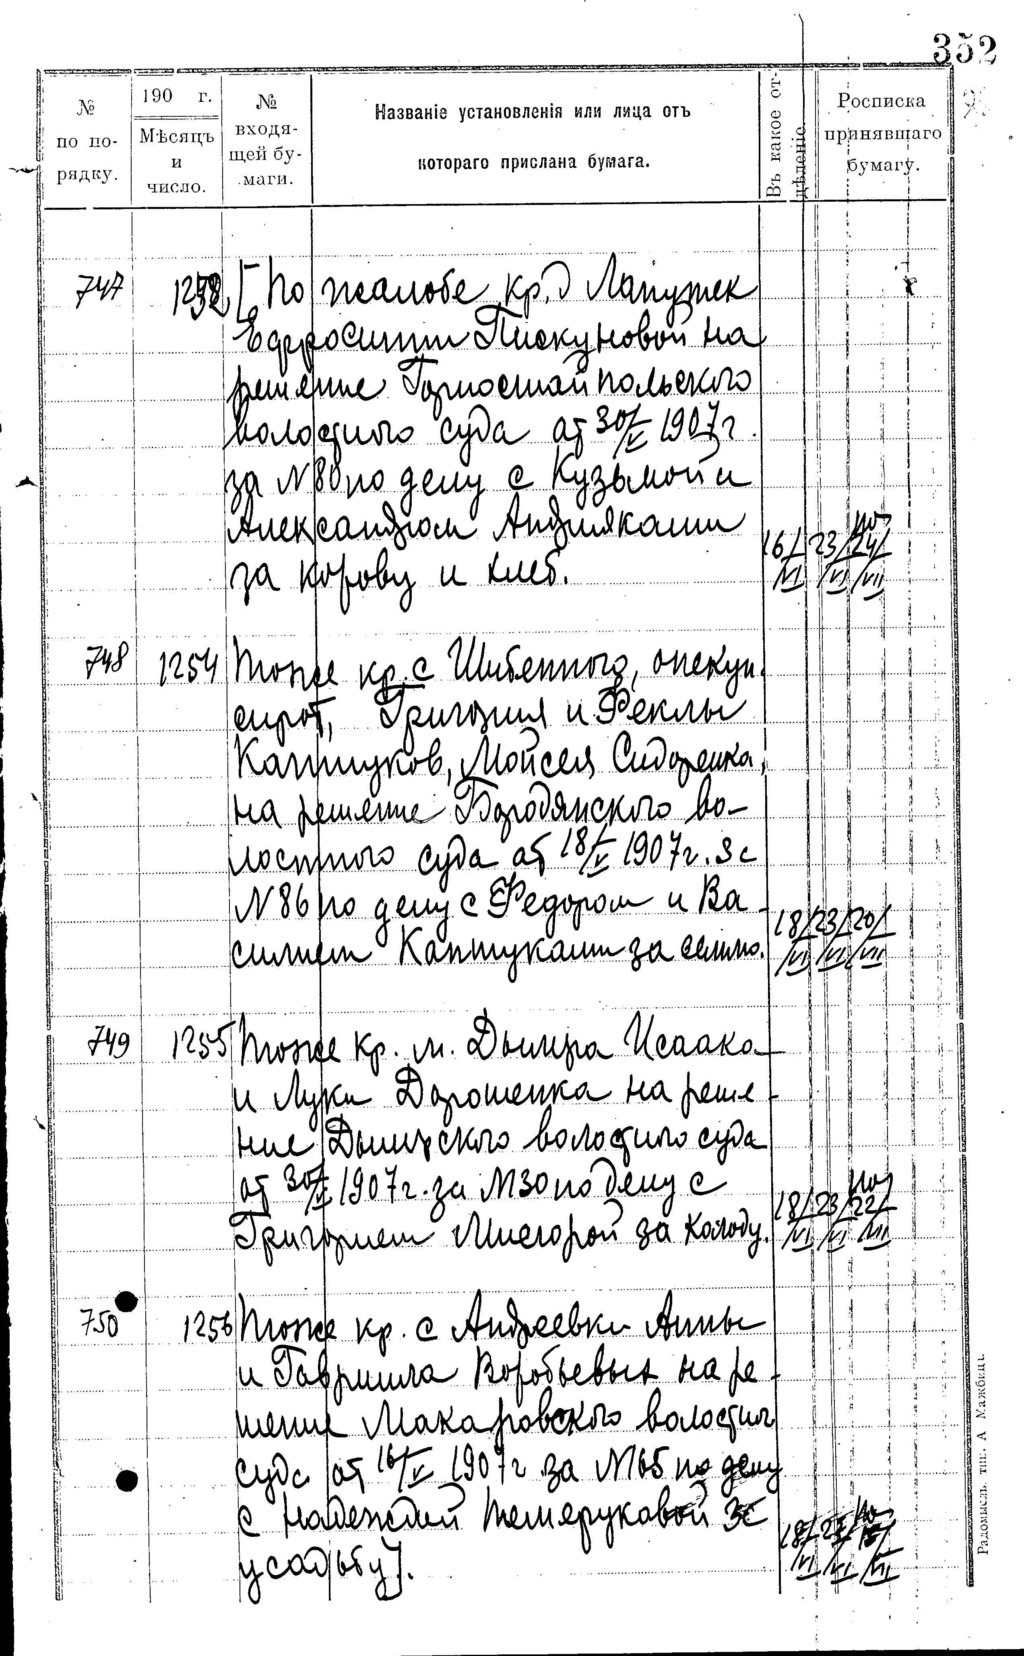 352
№ по по-рядку.
190 г.
Мѣсяцъ и число.
№ входя-щей бу-маги.
Названіе установленія или лица отъ
котораго прислана бумага.
Въ какое от-дѣленіе.
Росписка принявшаго бумагу.
747 [По жалобе кр. д Лапутек
Ефросинии Пискуновой на
решение Горностайпольского
волостного суда от 30/V 1907 г.
за N 80 по делу с Кузьмой и
Александром Андрияками
за корову и хлеб. 16/VI 23/VI 24/VII
748 1254 Тоже кр. с Шибенного, опекун.
сирот, Григория и Феклы
Каптуков, Мойсея Сидоренка,
на решение Бородянского во-
лостного суда от 18/V 1907 г. За
N 86 по делу с Федором и Ва-
силием Каптуками за семью. 18/VI 23/VI 20/VII
749 1255 Тоже кр. м. Дымера Исаака
и Луки Дорошенка на реше-
ние Дымерского волостного суда
от 30/V 1907 г. за N 30 по делу с
Григорием Мисюрой за колоду. 18/VI 23/VI 22/VII
750 1256 Тоже кр. с Андреевки Анны
и Гавриила Воробьевых на ре-
шение Макаровского волостного
суда от 16/V 1907 г за N 65 по делу
с Надеждой Темеруковой за
усадьбу]. 18/VI 15/VII
Радомысль. тип. А Мажбица.